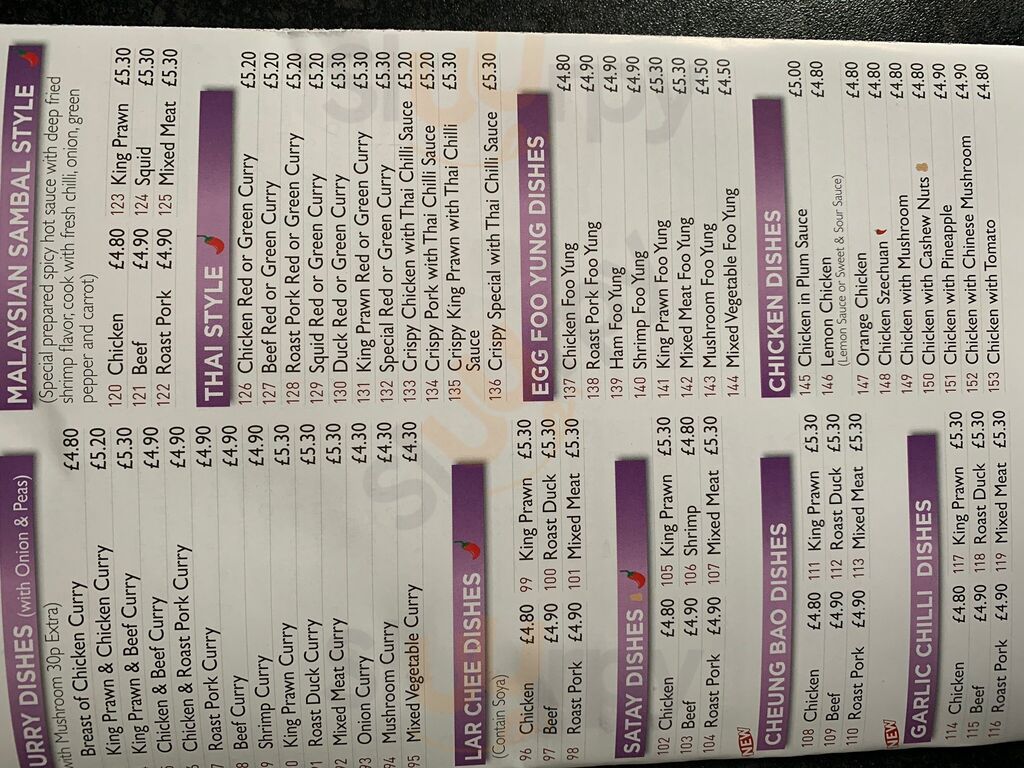 URRY DISHES (with Onion & Peas)
with Mushroom 30p Extra)
Breast of Chicken Curry £4.80
King Prawn & Chicken Curry £5.20
King Prawn & Beef Curry £5.30
Chicken & Beef Curry £4.90
Chicken & Roast Pork Curry £4.90
7 Roast Pork Curry £4.90
8 Beef Curry £4.90
9 Shrimp Curry £4.90
0 King Prawn Curry £5.30
91 Roast Duck Curry £5.30
92 Mixed Meat Curry £5.30
93 Onion Curry £4.30
94 Mushroom Curry £4.30
95 Mixed Vegetable Curry £4.30
LAR CHEE DISHES
(Contain Soya)
96 Chicken £4.80 99 King Prawn £5.30
97 Beef £4.90 100 Roast Duck £5.30
98 Roast Pork £4.90 101 Mixed Meat £5.30
SATAY DISHES
102 Chicken £4.80 105 King Prawn £5.30
103 Beef £4.90 106 Shrimp £4.80
104 Roast Pork £4.90 107 Mixed Meat £5.30
NEW
CHEUNG BAO DISHES
108 Chicken £4.80 111 King Prawn £5.30
109 Beef £4.90 112 Roast Duck £5.30
110 Roast Pork £4.90 113 Mixed Meat £5.30
NEW
GARLIC CHILLI DISHES
114 Chicken £4.80 117 King Prawn £5.30
115 Beef £4.90 118 Roast Duck £5.30
116 Roast Pork £4.90 119 Mixed Meat £5.30
MALAYSIAN SAMBAL STYLE
(Special prepared spicy hot sauce with deep fried
shrimp flavor, cook with fresh chilli, onion, green
pepper and carrot)
120 Chicken £4.80 123 King Prawn £5.30
121 Beef £4.90 124 Squid £5.30
122 Roast Pork £4.90 125 Mixed Meat £5.30
THAI STYLE
126 Chicken Red or Green Curry £5.20
127 Beef Red or Green Curry £5.20
128 Roast Pork Red or Green Curry £5.20
129 Squid Red or Green Curry £5.20
130 Duck Red or Green Curry £5.30
131 King Prawn Red or Green Curry £5.30
132 Special Red or Green Curry £5.30
133 Crispy Chicken with Thai Chilli Sauce £5.20
134 Crispy Pork with Thai Chilli Sauce £5.20
135 Crispy King Prawn with Thai Chilli £5.30
Sauce
136 Crispy Special with Thai Chilli Sauce £5.30
EGG FOO YUNG DISHES
137 Chicken Foo Yung £4.80
138 Roast Pork Foo Yung £4.90
139 Ham Foo Yung £4.90
140 Shrimp Foo Yung £4.90
141 King Prawn Foo Yung £5.30
142 Mixed Meat Foo Yung £5.30
143 Mushroom Foo Yung £4.50
144 Mixed Vegetable Foo Yung £4.50
CHICKEN DISHES
145 Chicken in Plum Sauce £5.00
146 Lemon Chicken £4.80
(Lemon Sauce or Sweet & Sour Sauce)
147 Orange Chicken £4.80
148 Chicken Szechuan £4.80
149 Chicken with Mushroom £4.80
150 Chicken with Cashew Nuts £4.80
151 Chicken with Pineapple £4.90
152 Chicken with Chinese Mushroom £4.90
153 Chicken with Tomato £4.80